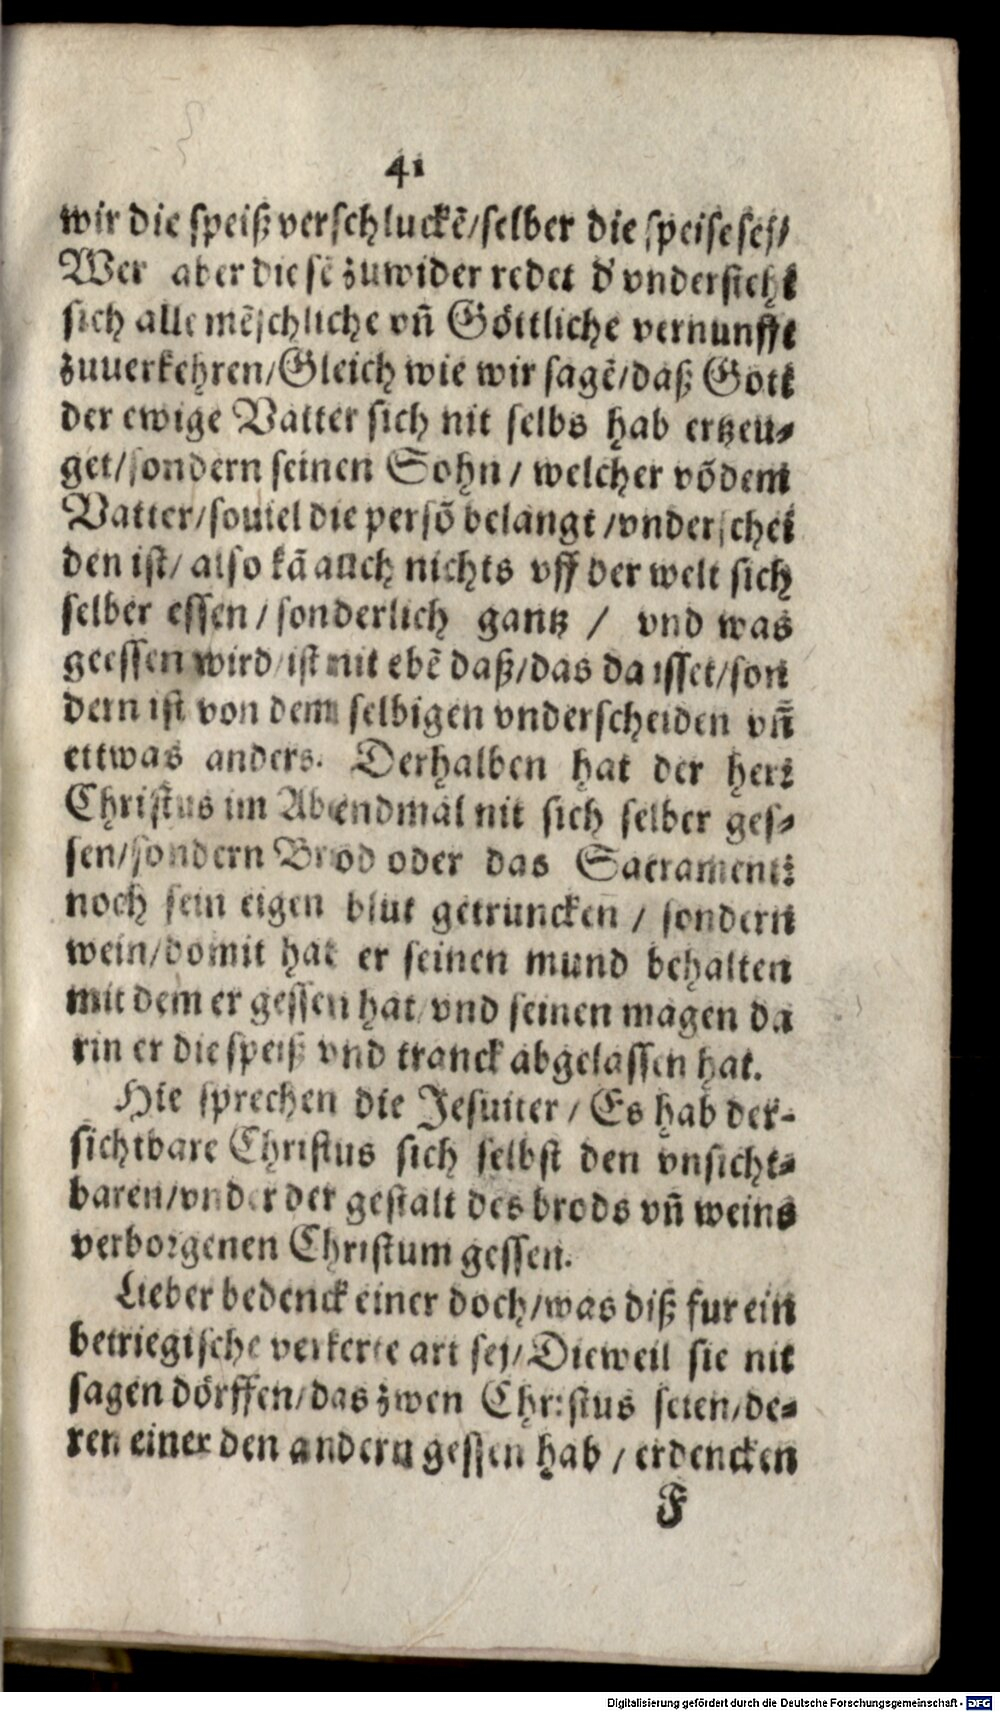 41
wir die speiß verschluckẽ/selber die speise sey/
Wer aber diesẽ zuwider redet d' vndersteht
sich alle mẽschliche vñ Göttliche vernunfft
zuuerkehren/Gleich wie wir sagẽ/daß Gott
der ewige Vatter sich nit selbs hab ertzeu⸗
get/sondern seinen Sohn / welcher võ dem
Vatter/souiel die persõ belangt /vnderschei
den ist/ also kã auch nichts vff der welt sich
selber essen / sonderlich gantz / vnd was
geessen wird/ist nit ebẽ daß/das da isset/son
dern ist von dem selbigen vnderscheiden vñ
ettwas anders. Derhalben hat der herr
Christus im Abendmal nit sich selber ges⸗
sen/sondern Brod oder das Sacrament:
noch sein eigen blut getruncken / sondern
wein/domit hat er seinen mund behalten
mit dem er gessen hat/vnd seinen magen da
rin er die speiß vnd tranck abgelassen hat.
Hie sprechen die Jesuiter / Es hab der-
sichtbare Christus sich selbst den vnsicht⸗
baren/vnder der gestalt des brods vñ weins
verborgenen Christum gessen.
Lieber bedenck einer doch/was diß fur ein
betriegische verkerte art sey/Dieweil sie nit
sagen dörffen/das zwen Christus seien/de⸗
ren einer den andern gessen hab / erdencken
F
Digitalisierung gefördert durch die Deutsche Forschungsgemeinschaft - DFG